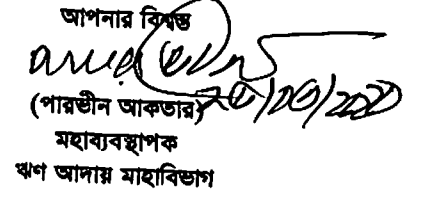 আপনার বিশ্বস্ত
(পারভীন আকতার)
মহাব্যবস্থাপক
ঋণ আদায় মাহাবিভাগ